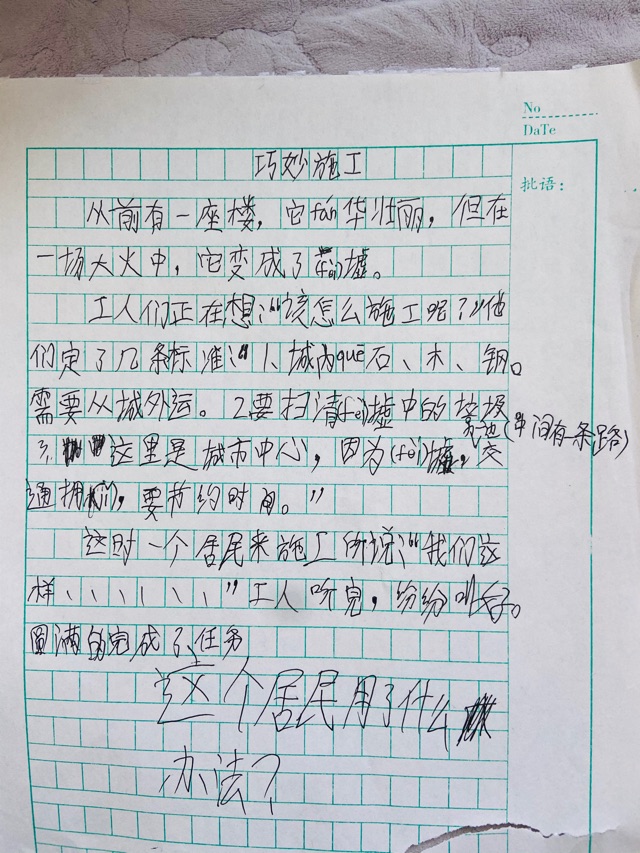 No
DaTe
批语：
巧妙施工
从前有一座楼，它fán华壮丽，但在
一场大火中，它变成了(fèi)墟。
工人们正在想：“该怎么施工呢？”他
们定了几条标准：“1、城内quē石、木、钢。
需要从城外运。2要扫清fèi墟中的垃圾
3. 这里是城市中心，因为(fèi)墟，交
(中间有一条路)
通拥(jǐ)，要节约时间。”
这时一个居民来施工所说：“我们这
样、、、、、、”工人听完，纷纷叫好。
圆满的完成了任务
这个居民用了什么
办法？